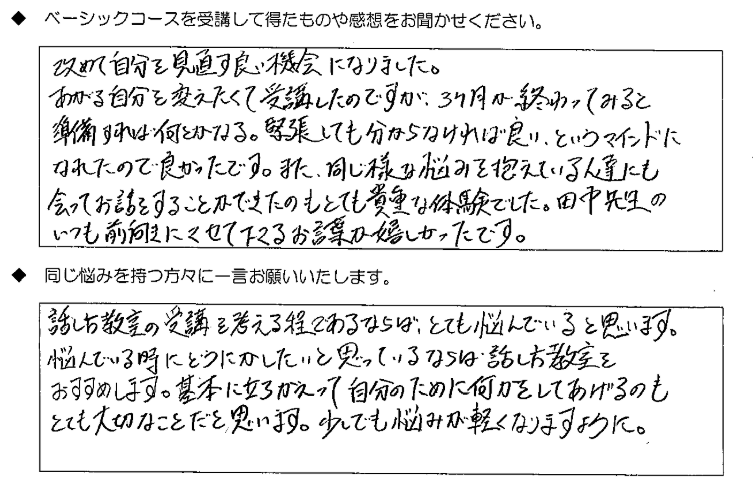 ◆ ベーシックコースを受講して得たものや感想をお聞かせください。
改めて自分を見直す良い機会になりました。
あがる自分を変えたくて受講したのですが、3ヶ月が終わってみると
準備すれば何とかなる。緊張しても分からなければ良い、というマインドに
なれたので良かったです。また、同じ様な悩みを抱えている人達にも
会ってお話をすることができたのもとても貴重な体験でした。田中先生の
いつも前向きにさせて下さるお言葉が嬉しかったです。
◆ 同じ悩みを持つ方々に一言お願いいたします。
話し方教室の受講を考える程であるならば、とても悩んでいると思います。
悩んでいる時にどうにかしたいと思っているならば話し方教室を
おすすめします。基本に立ちかえって自分のために何かをしてあげるのも
とても大切なことだと思います。少しでも悩みが軽くなりますように。